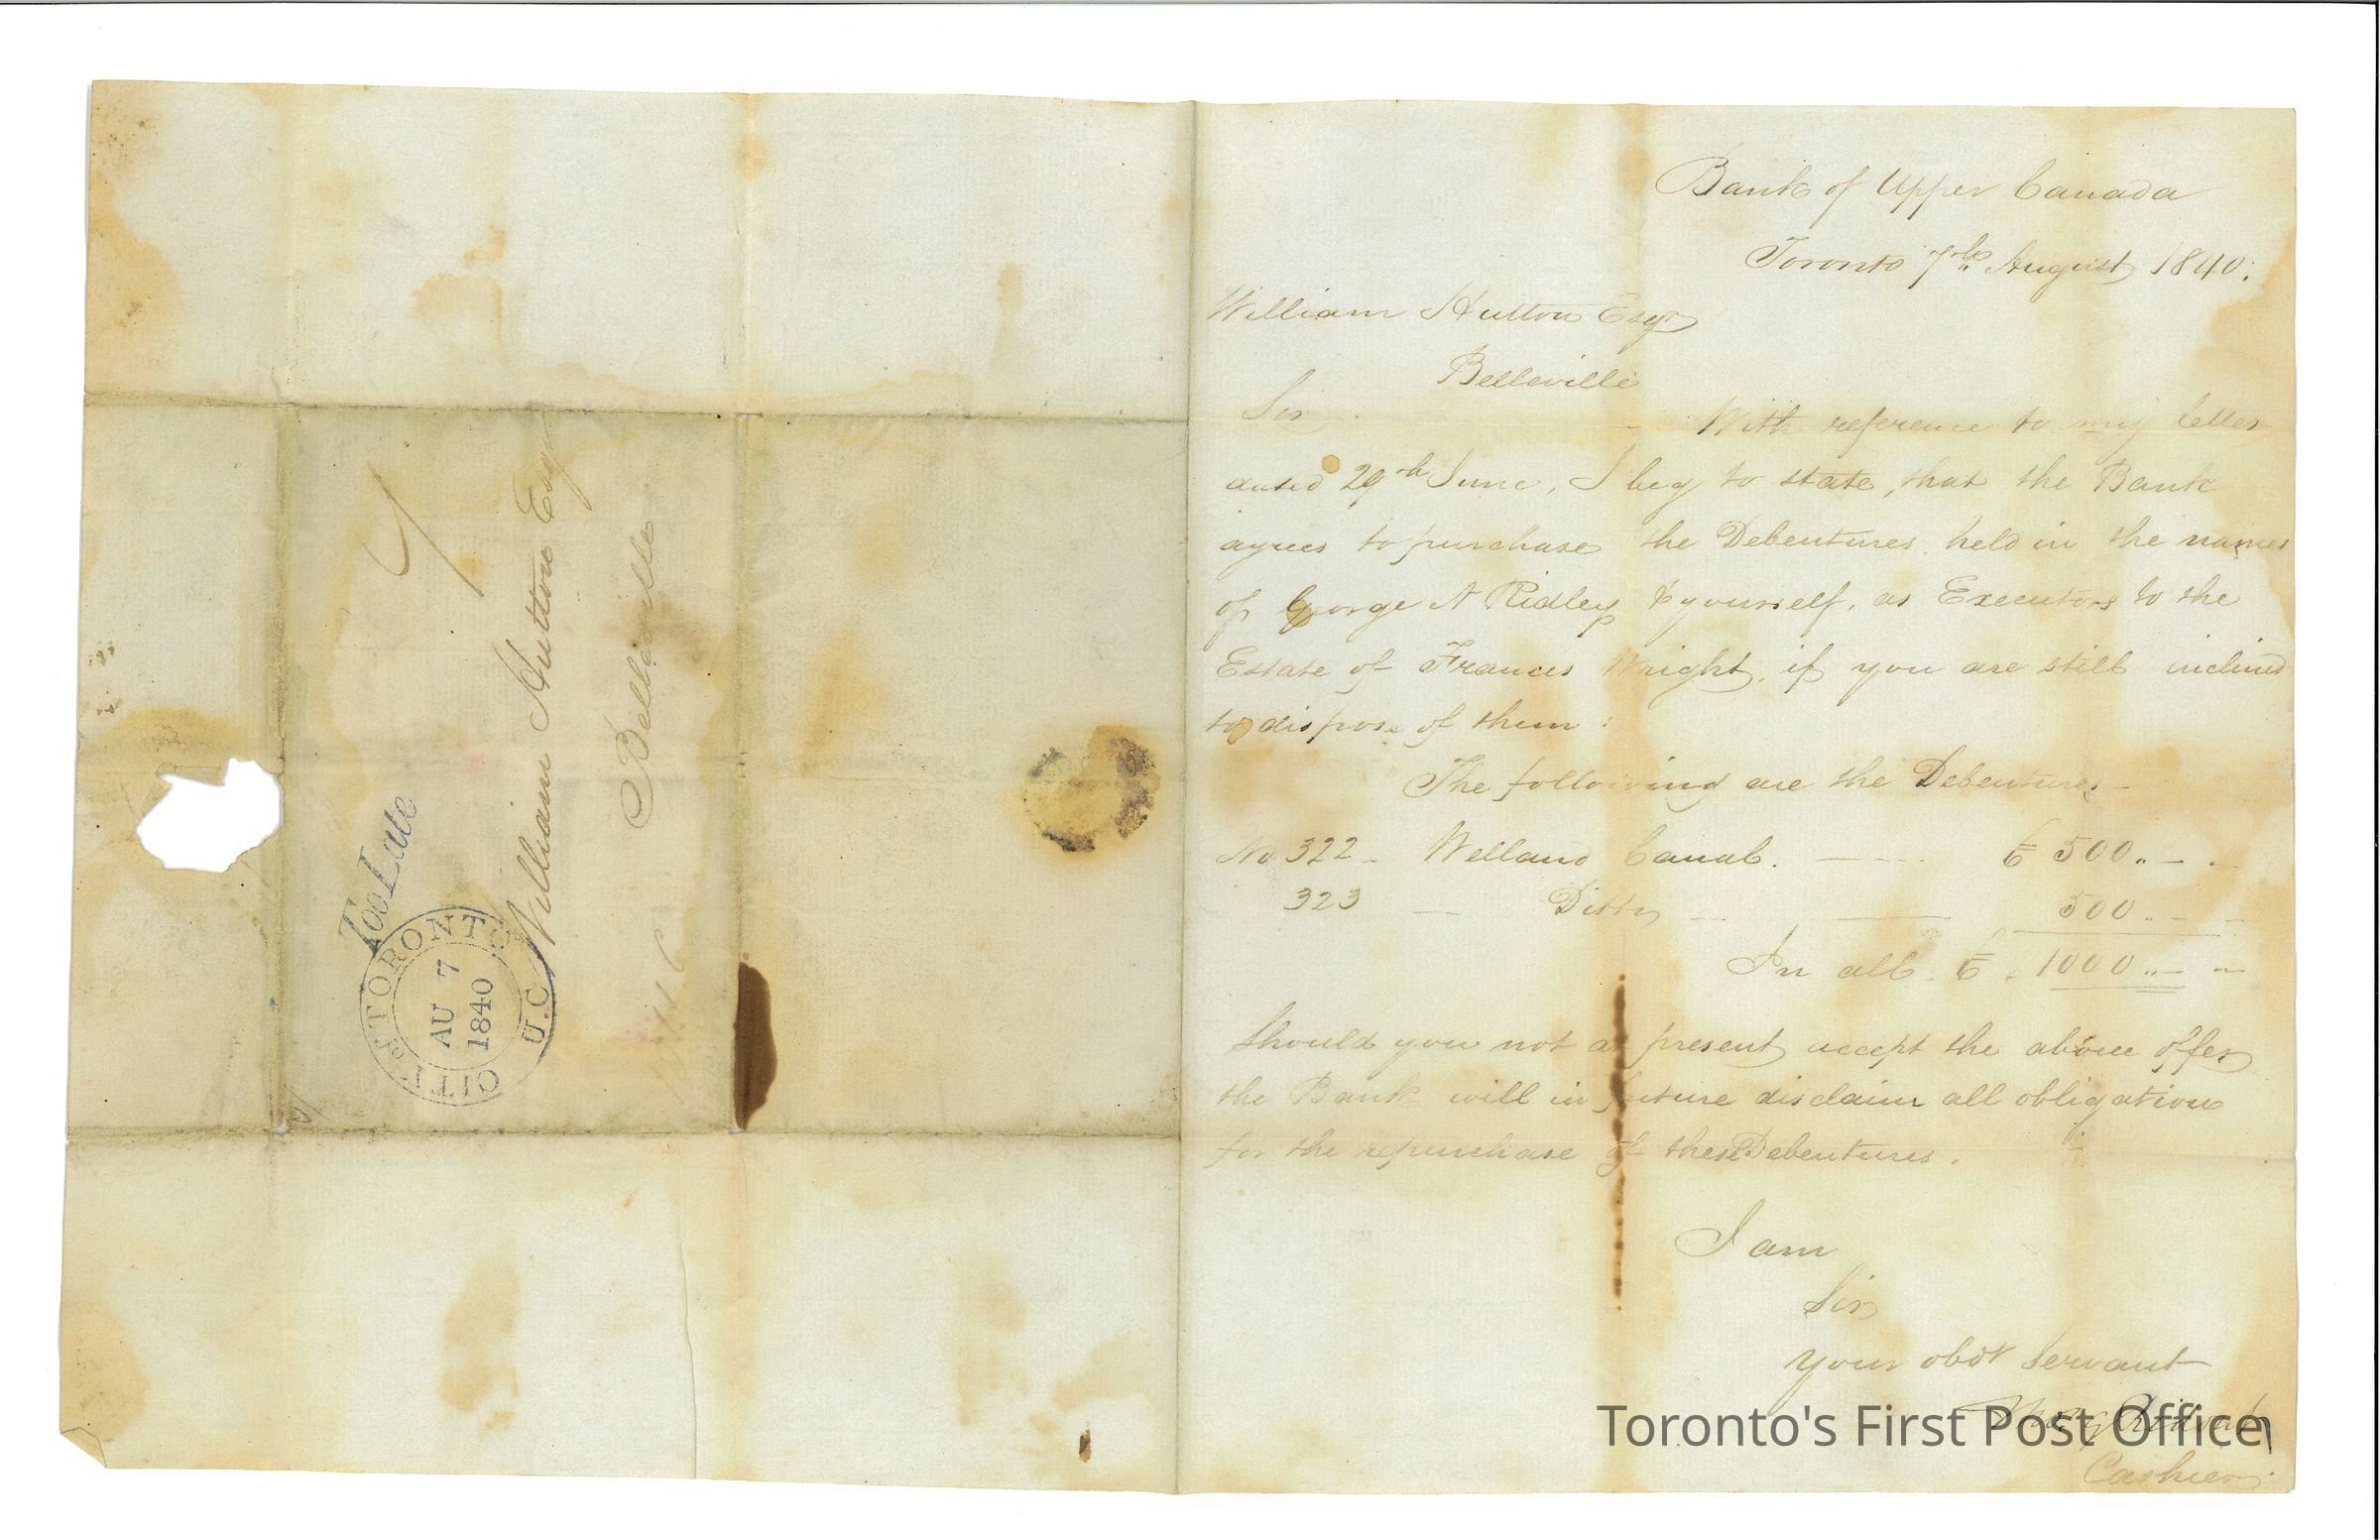 Too Late
CITY OF TORONTO
AU 7
1840
U.C
William Hutton Esqr
Belleville
Bank of Upper Canada
Toronto 7th August 1840.
William Hutton Esqr
Belleville
Sir
With reference to my letter
dated 29th June, I beg to state, that the Bank
agrees to purchase the Debentures held in the names
of George N Ridley & yourself, as Executors to the
Estate of Frances Wright, if you are still inclined
to dispose of them:
The following are the Debentures -
No 322 - Welland Canal. - £ 500 " - -
323 - Ditto - - 500 " - -
In all £ 1000 " - -
Should you not at present accept the above offer
the Bank will in future disclaim all obligation
for the repurchase of these Debentures.
I am
Sir
Your obdt Servant
Cashier
Toronto's First Post Office